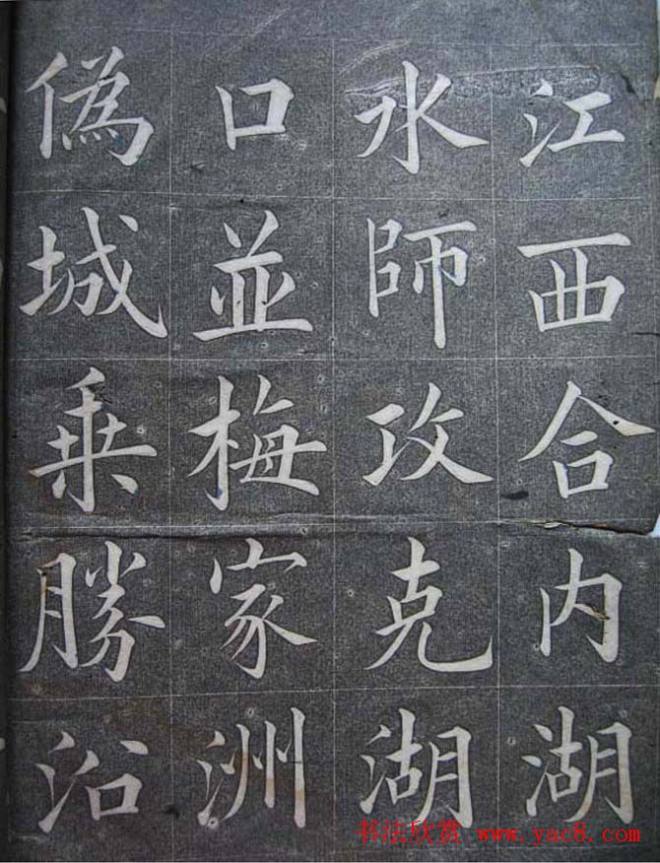 江西合内湖
水師攻克湖
口並梅家洲
偽城乗勝㳂
书法欣赏 www.yac8.com